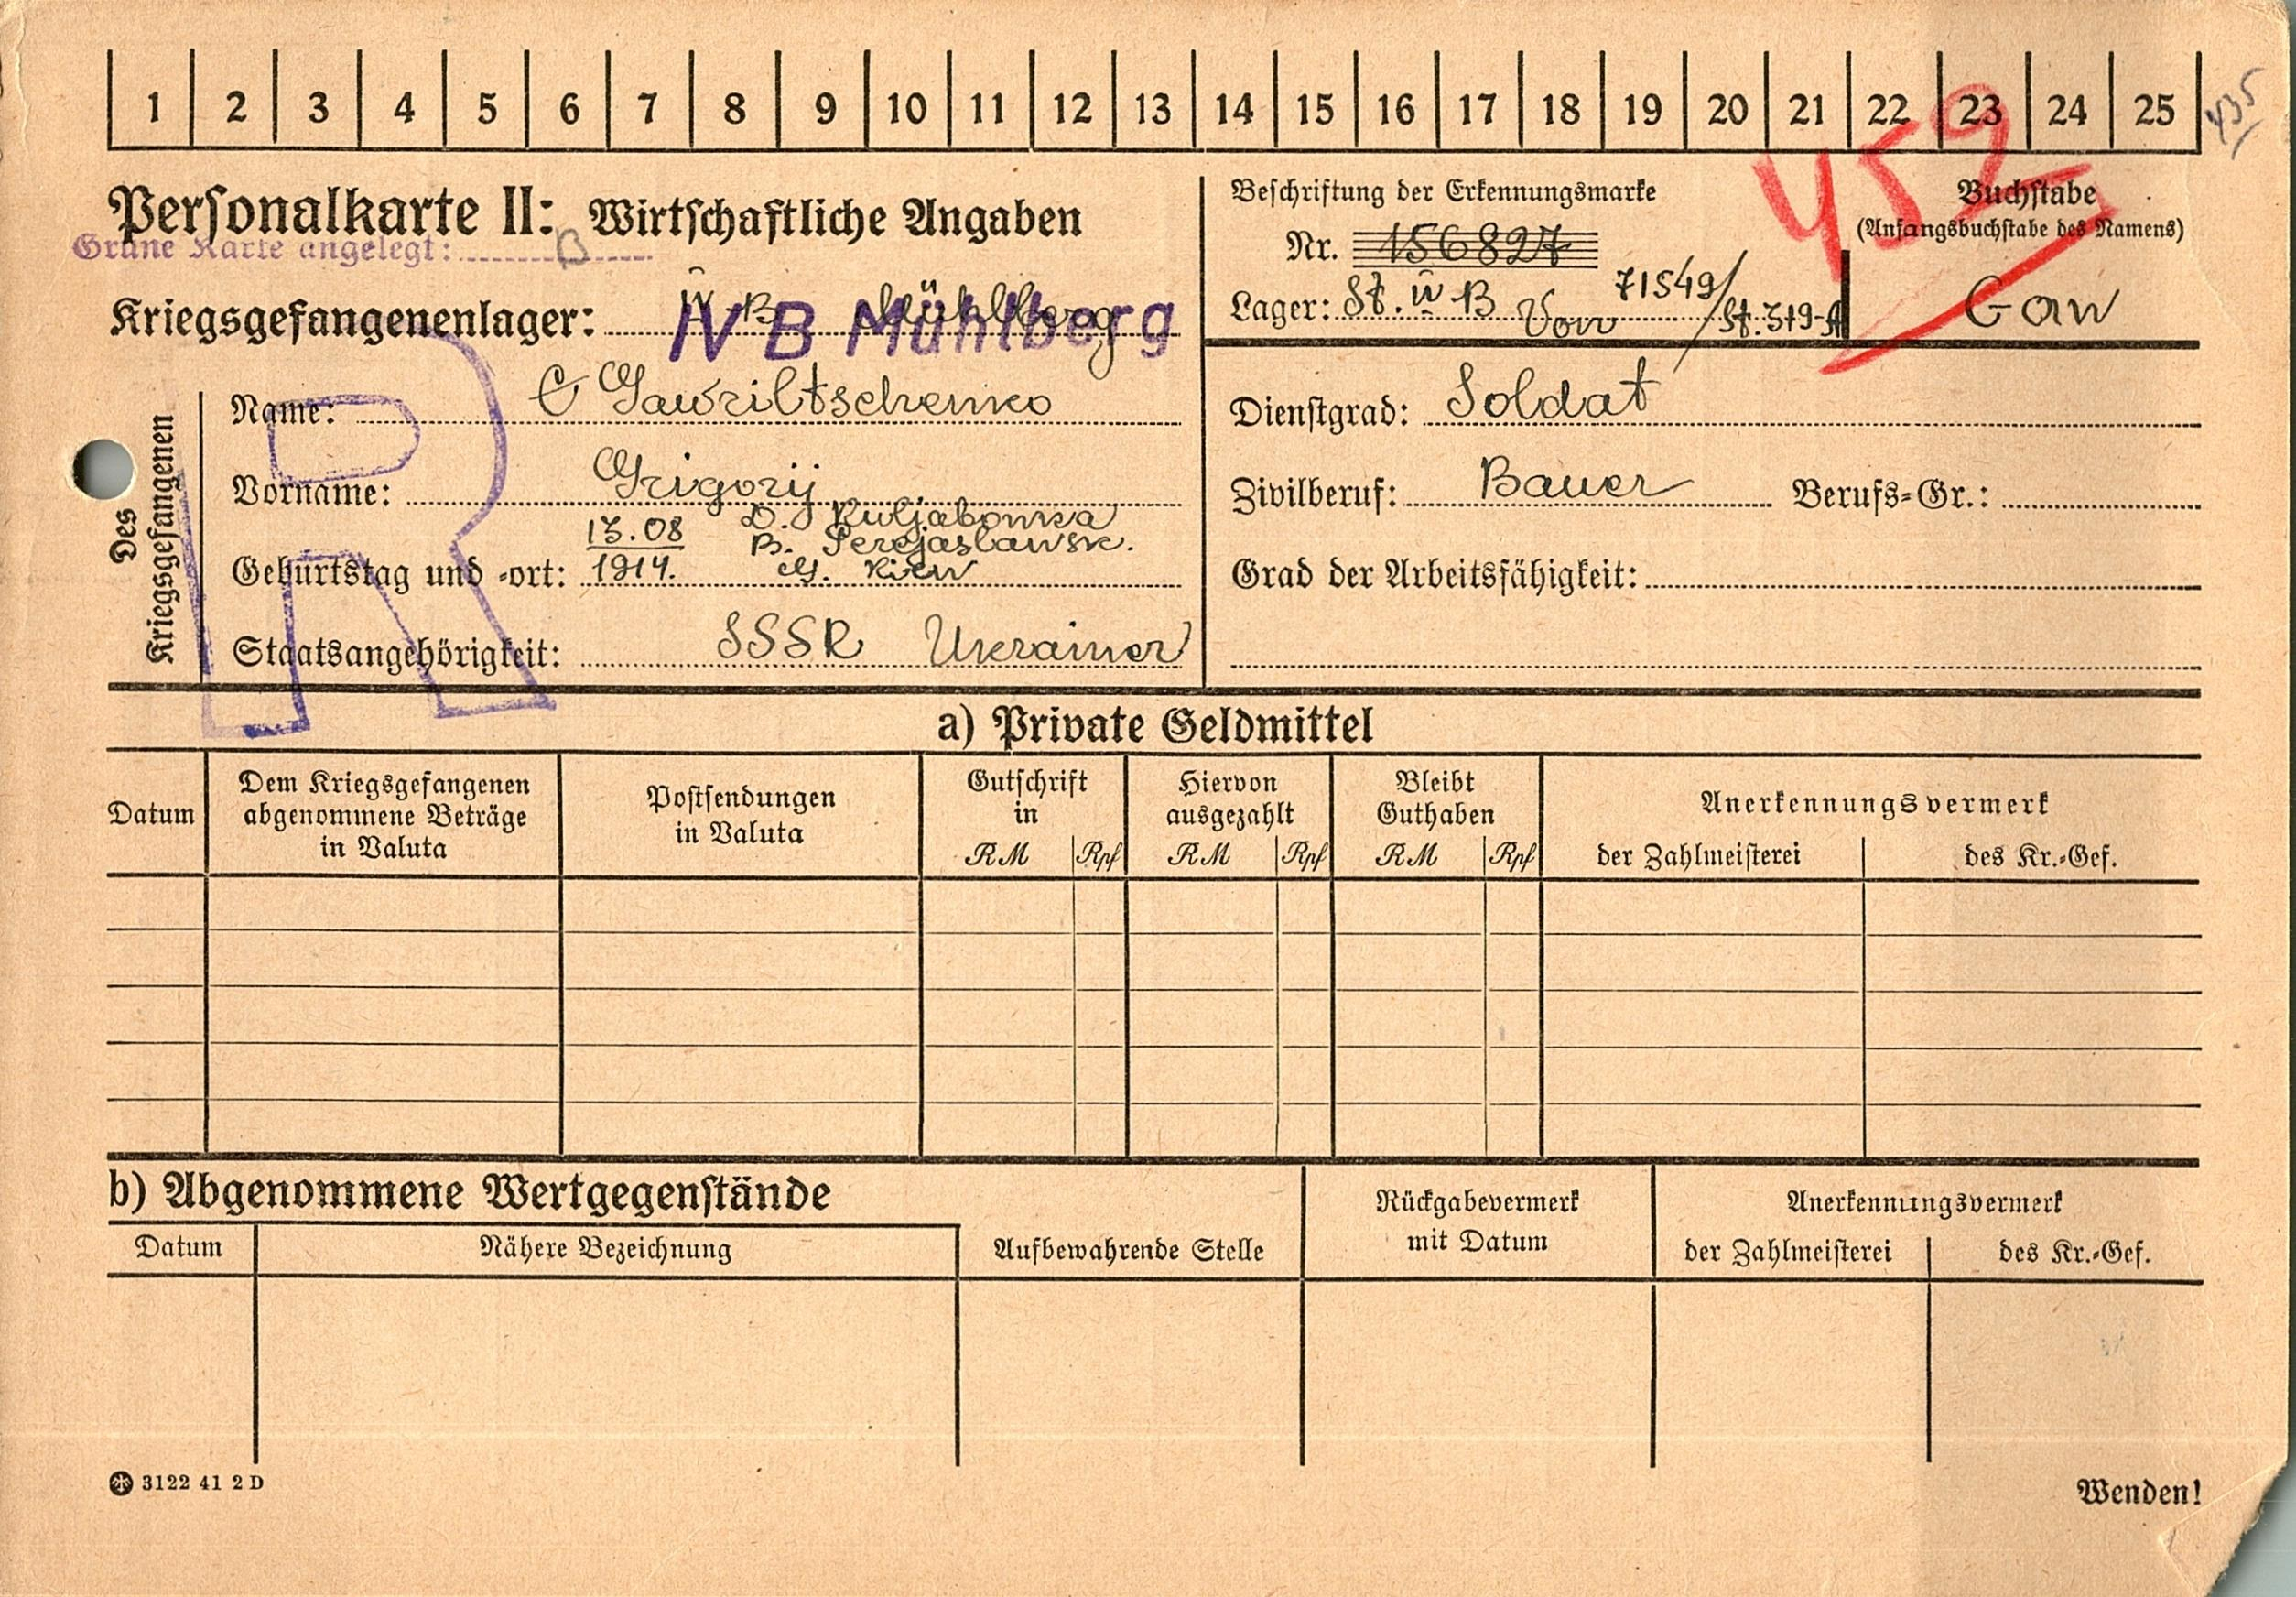 1 2 3 4 5 6 7 8 9 10 11 12 13 14 15 16 17 18 19 20 21 22 23 24 25
435
452
Personalkarte II: Wirtschaftliche Angaben
Grüne Karte angelegt: B
Kriegsgefangenenlager: IV B Mühlberg
IV B Mühlberg
Beschriftung der Erkennungsmarke
Nr. 156827
Lager: St. IV B Von 71549/St. 319-A
Buchstabe
(Anfangsbuchstabe des Namens)
Gaw
Des Kriegsgefangenen
R
Name: Gawriltschenko
Vorname: Grigorij
Geburtstag und -ort: 13.08 1914. D. Kuljabowka
B. Perejaslawsk.
G. Kiew
Staatsangehörigkeit: SSSR Ukrainer
Dienstgrad: Soldat
Zivilberuf: Bauer Berufs-Gr.:
Grad der Arbeitsfähigkeit:
a) Private Geldmittel
Datum
Dem Kriegsgefangenen
abgenommene Beträge
in Valuta
Postsendungen
in Valuta
Gutschrift
in
RM Rpf
Hiervon
ausgezahlt
RM Rpf
Bleibt
Guthaben
RM Rpf
Anerkennungsvermerk
der Zahlmeisterei des Kr.-Gef.
b) Abgenommene Wertgegenstände
Datum Nähere Bezeichnung
Aufbewahrende Stelle
Rückgabevermerk
mit Datum
Anerkennungsvermerk
der Zahlmeisterei des Kr.-Gef.
3122 41 2 D
Wenden!